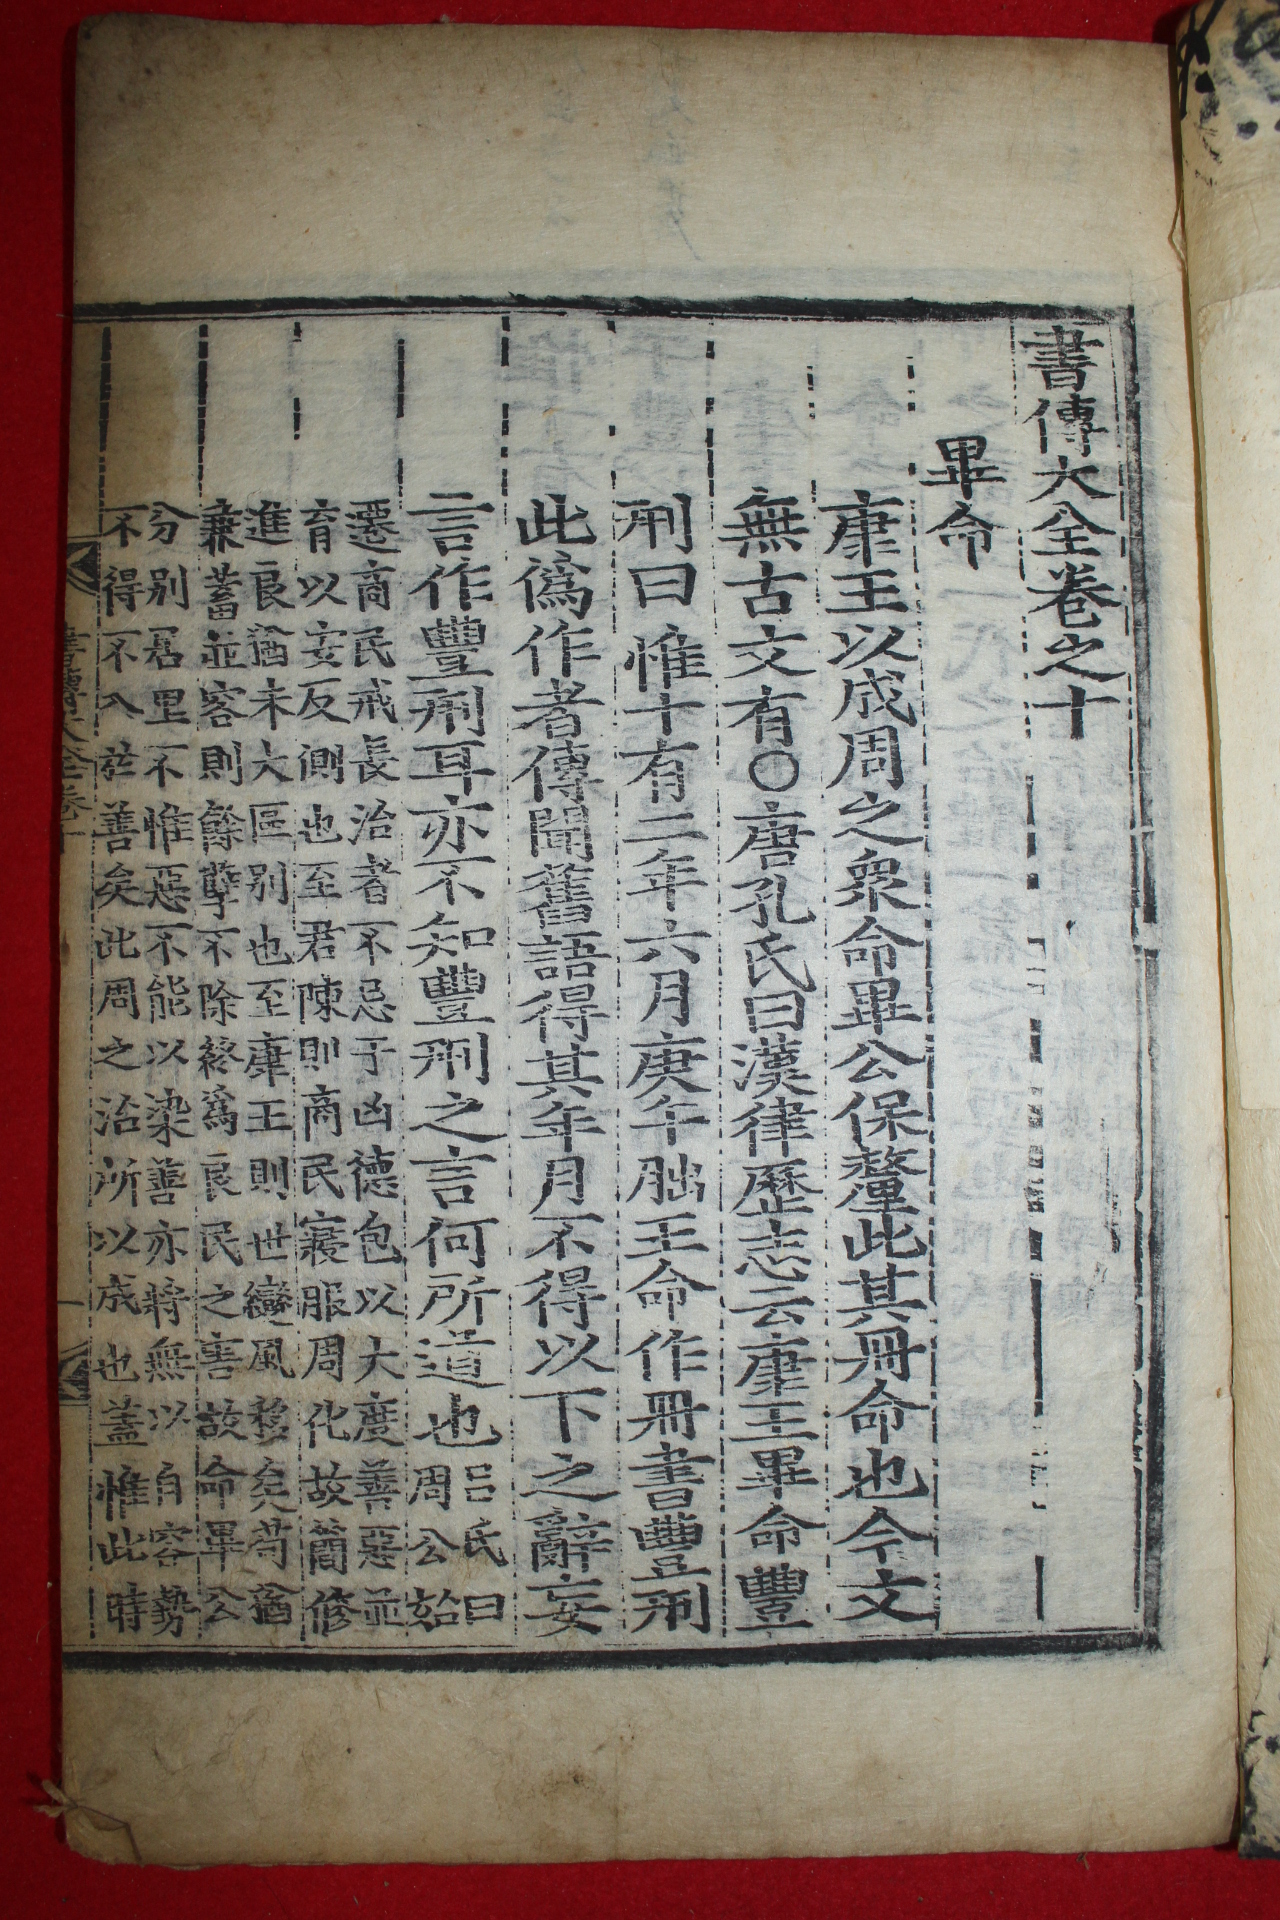 書傳大全卷之十
畢命
康王以成周之衆命畢公保釐此其冊命也今文
無古文有○唐孔氏曰漢律歷志云康王畢命豐
刑曰惟十有二年六月庚午朏王命作冊書豐刑
此僞作者傳聞舊語得其年月不得以下之辭妄
言作豐刑耳亦不知豐刑之言何所道也
呂氏曰
周公始
遷商民戒長治者不忌于凶德包以大度善惡並
育以安反側也至君陳則商民寢服周化故簡修
進良猶未大區別也至康王則世變風移矣苟猶
兼蓄並容則餘孽不除終爲良民之害故命畢公
分別居里不惟惡不能以染善亦將無以自容勢
不得不入於善矣此周之治所以成也蓋惟此時
書傳大全卷十
一